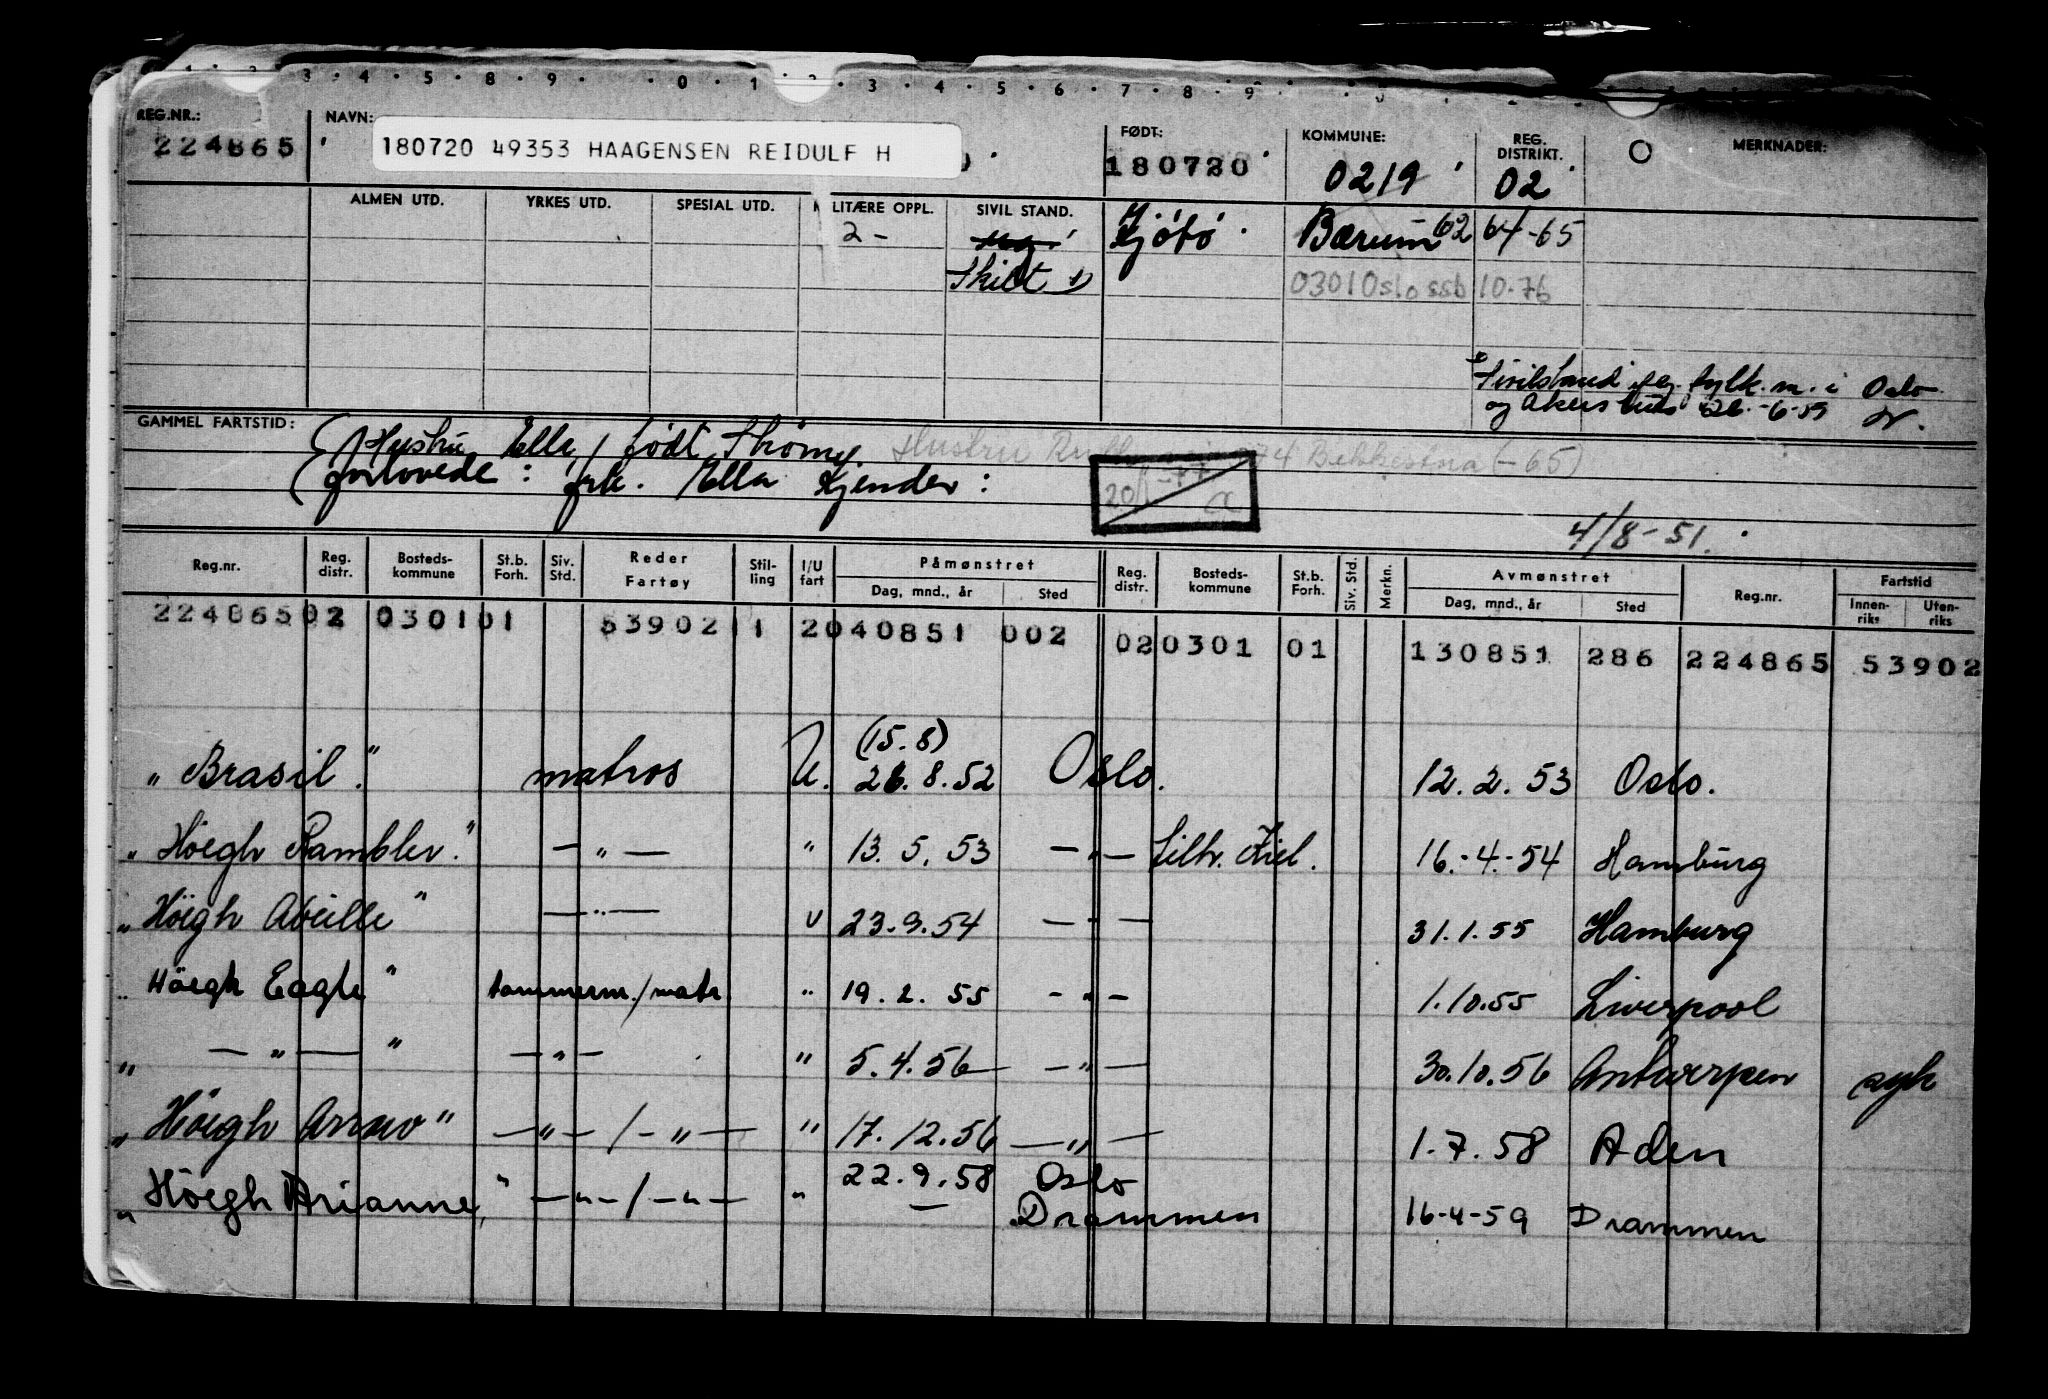 3 · 4 · 5 · 8 · 9 · · 0 · 1 · 2 · 3 · 4 · 5 · 6 · 7 · 8 · 9
REG.NR.: NAVN: FØDT: KOMMUNE: REG. DISTRIKT. MERKNADER:
224865 180720 49353 HAAGENSEN REIDULF H 180720 0219 02
ALMEN UTD. YRKES UTD. SPESIAL UTD. LITÆRE OPPL. SIVIL STAND.
2 - Bærum 62 64-65
Skilt 0301 Oslo ssb 10.76
Sivilstand flg. fylk.m. i Oslo
og Akershus 26.-6-59
GAMMEL FARTSTID:
Hustru Ella, født Strøm Hustru
forlovede: frk. Ella Kjender:
20/ -77 a
4/8-51.
Reg.nr. Reg. distr. Bosteds-kommune St.b. Forh. Siv. Std. Reder Fartøy Stil-ling I/U fart Påmønstret Dag, mnd., år Sted Reg. distr. Bosteds-kommune St.b. Forh. Siv. Std. Merkn. Avmønstret Dag, mnd., år Sted Reg.nr. Fartstid Innen-riks Uten-riks
224865 02 0301 01 53902 1 1 2 040851 002 02 0301 01 130851 286 224865 53902
(15.8)
"Brasil." matros U. 26.8.52 Oslo. 12.2.53 Oslo.
"Höegh Rambler." — " — " 13.5.53 — " — Kiel. 16.-4.-54 Hamburg
"Höegh Abeille" — " — U 23.9.54 — " — 31.1.55 Hamburg
"Höegh Eagle" tømmerm./matr. " 19.2.55 - " - 1.10.55 Liverpool
" — " — " — " — " 5.4.56 — " — 30.10.56 Antwerpen
"Höegh Arrow" — " — / — " — " 17.12.56 — " — 1.7.58 Aden
22.9.58 Oslo
"Höegh Arianne," — " — / — " — " — Drammen 16-4-59 Drammen